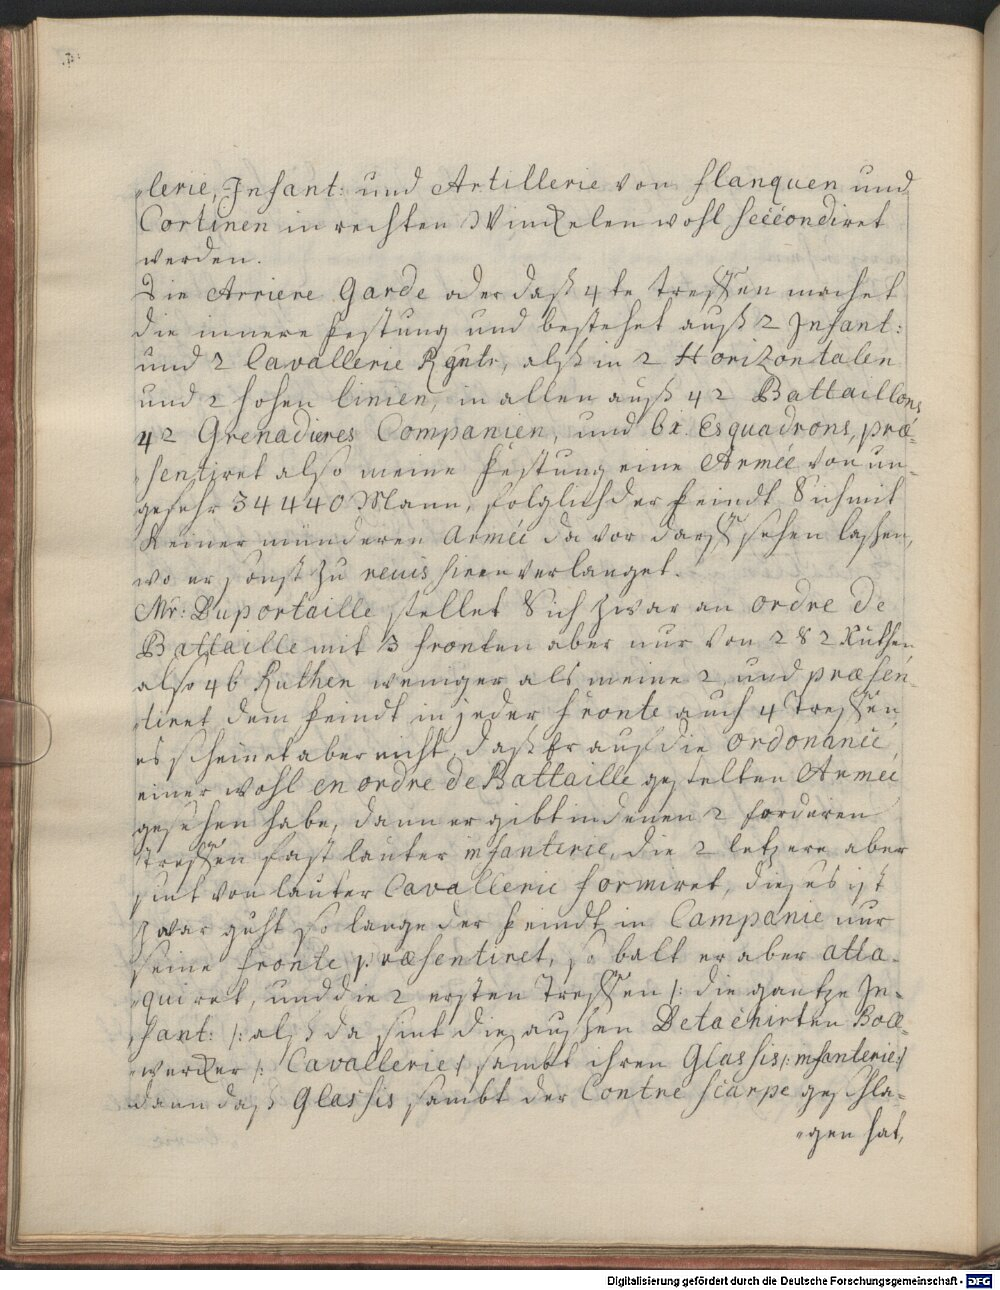 „lerie, Infant: und Artillerie von flanquen und
Cortinen in rechten Winckelen wohl seccondiret
werden.
Die Arriere Garde oder daß 4te treffen machet
die innere Festung und bestehet auß 2 Infant:
und 2 Cavallerie Rgntr, alß in 2 Horizontalen
und 2 hohen linien, in allen auß 42 Battaillons
42 Grenadieres Companien, und 61. Esquadrons, præ-
„sentiret also meine Festung eine Armée von un-
gefehr 34440 Mann, folglich der Feindt Sich mit
Keiner münderen Armée da vor darff sehen laßen,
wo er sonst zu reuissiren verlanget.
Mr: Duportaille stellet Sich zwar an ordre de
Battaille mit 3 fronten aber nur von 282 Ruthen
also 46 Ruthen weniger als meine 2, und præsen-
„tiret dem Feindt in jeder fronte auch 4 Treffen,
es scheinet aber nicht, daß Er auf die ordonance
einer wohl en ordre de Battaille gestelten Armée
gesehen habe, dann er gibt in denen 2 forderen
treffen fast lauter infanterie, die 2 letzere aber
sint von lauter Cavallerie formiret, dieses ist
zwar guht so lange der Feindt in Campanie nur
seine fronte præsentiret, so balt er aber atta-
„quiret, und die 2 ersten Treffen /: die gantze In-
„fant: /: alß da sint die aussen Detachirten Boll-
„wercker /: Cavallerie :/ sambt ihren Glassis /: infanterie :/
dann daß Glassis sambt der Contre scarpe geschla-
„gen hat,
Digitalisierung gefördert durch die Deutsche Forschungsgemeinschaft - DFG